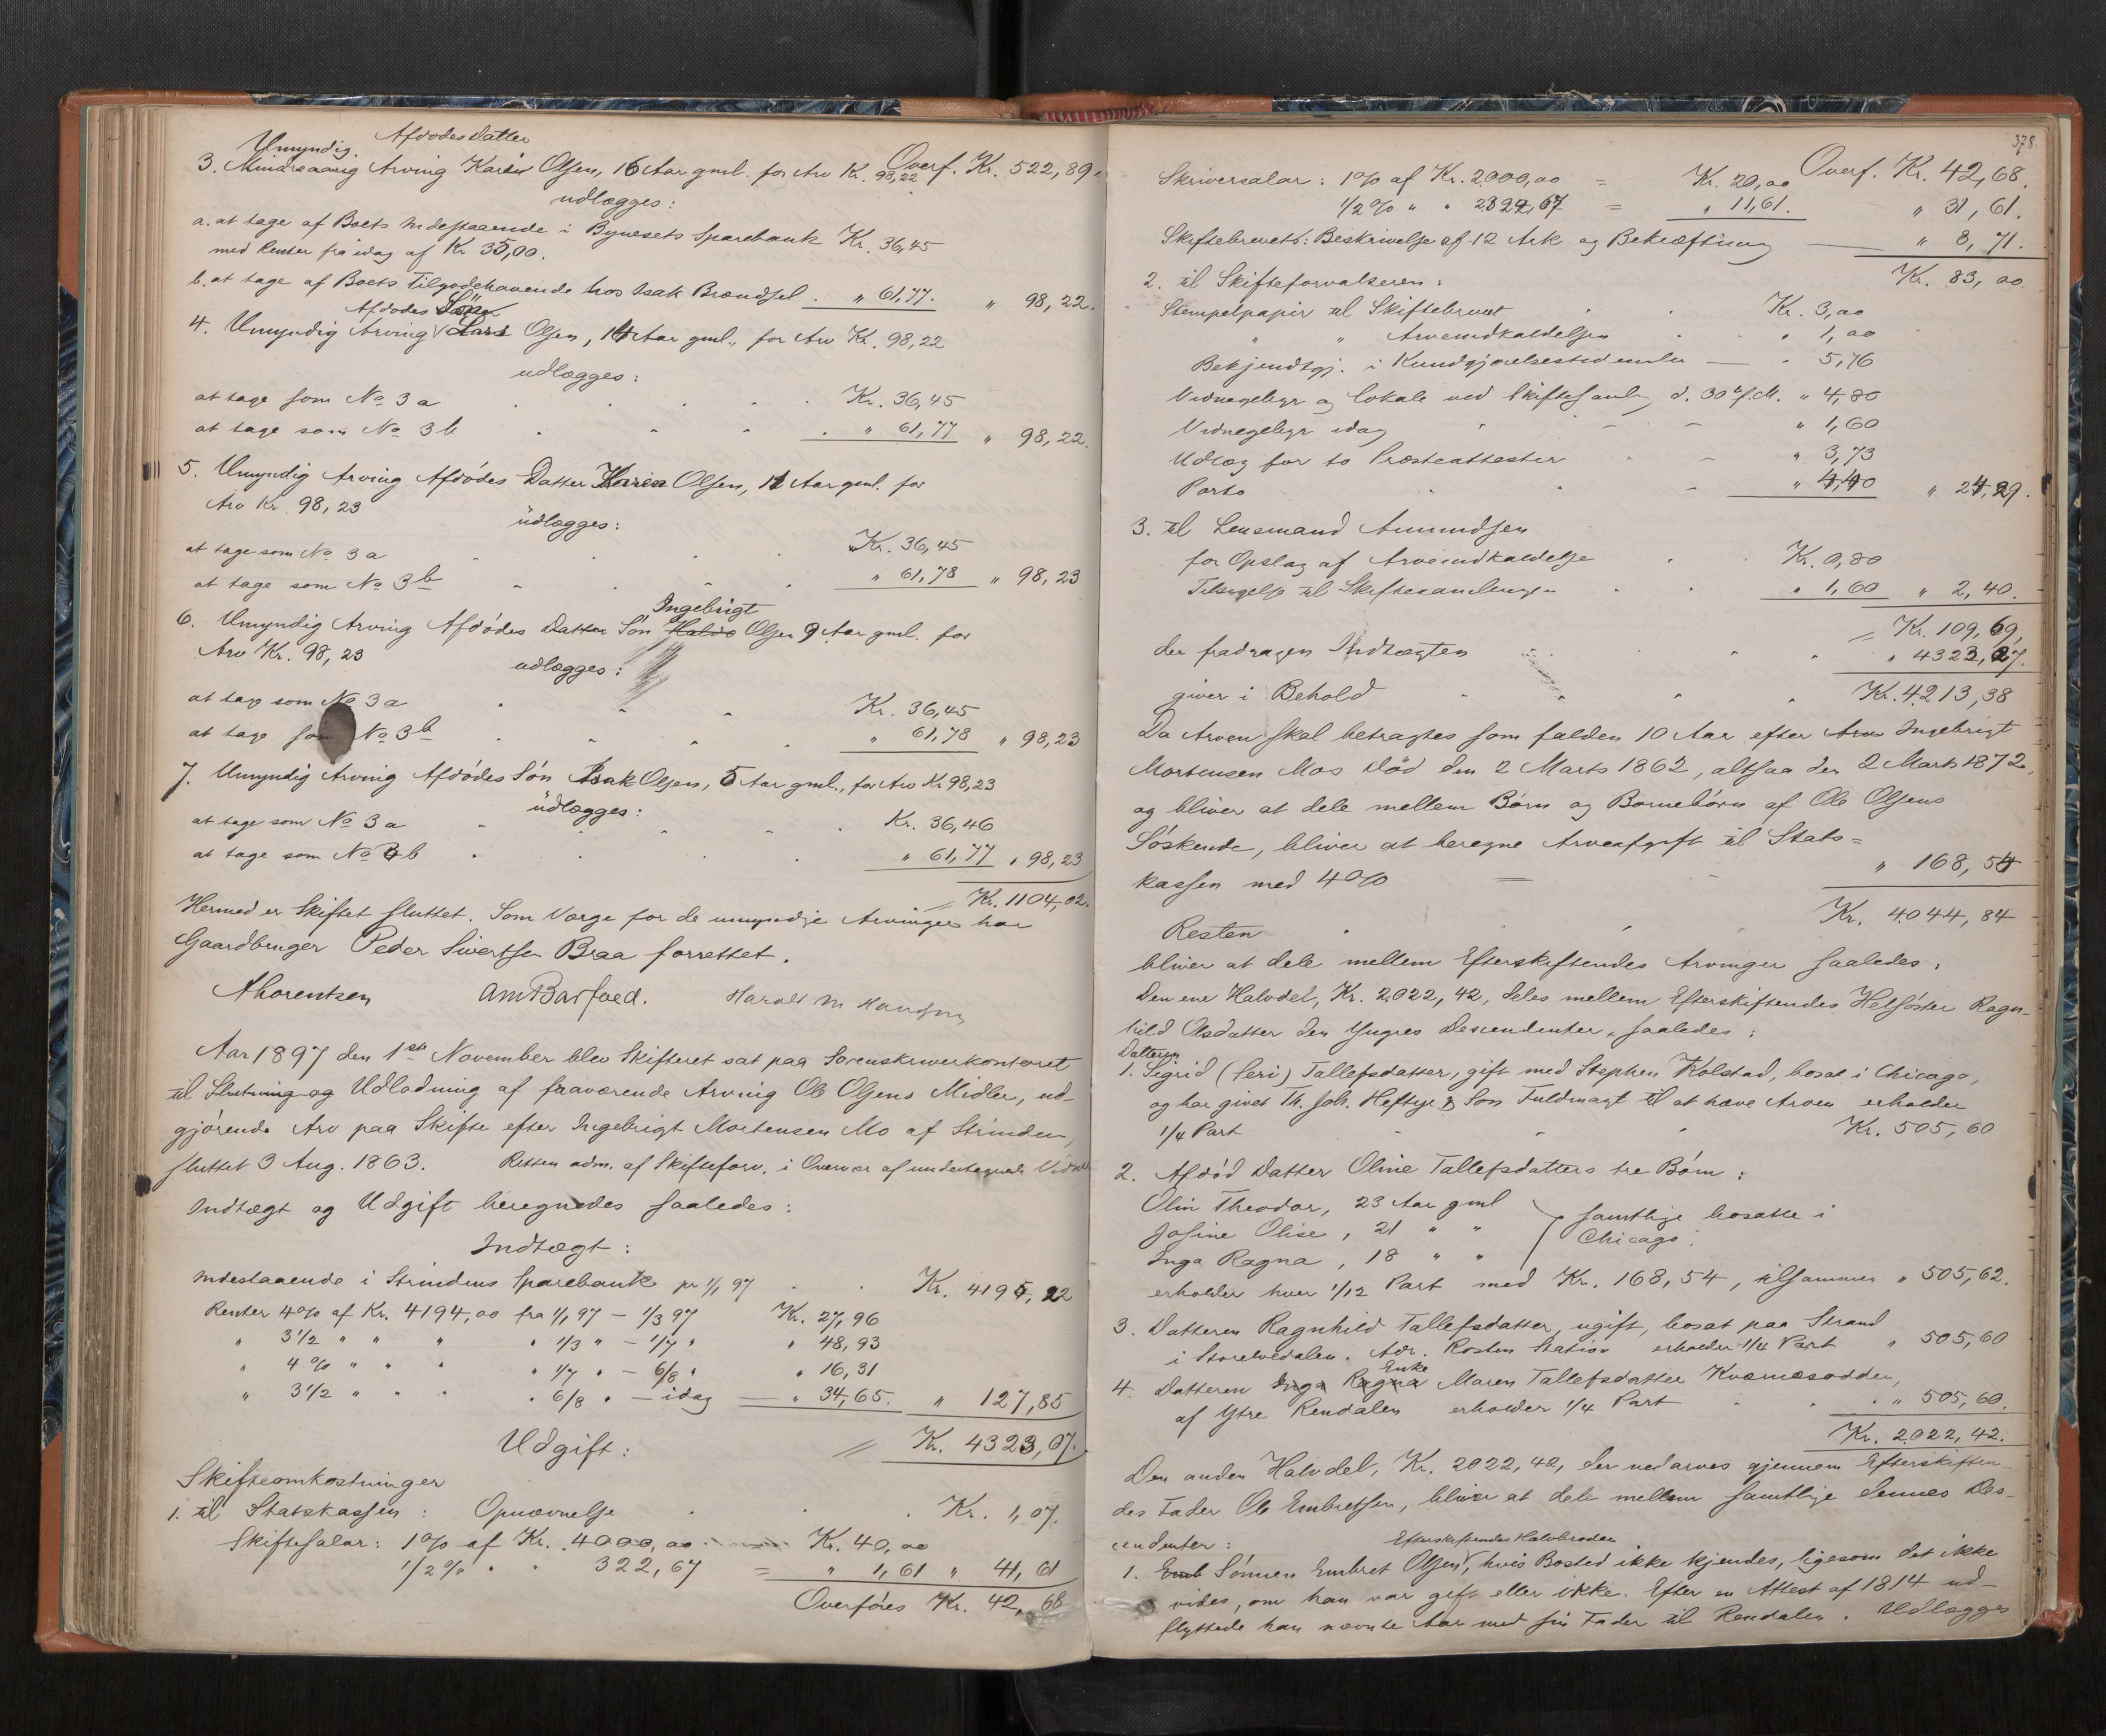 Umyndig Afdødes Datter
3. Mindreaarig Arving Karin Olsen, 16 Aar gml. for Arv Kr. 98,22 Overf. Kr. 522,89.
udlægges:
a. at tage af Boets Indestaaende i Bynesets Sparebank Kr. 36,45
med Renter fra idag af Kr 35,00.
b. at tage af Boets Tilgodehavende hos Isak Brændsel . " 61,77. " 98,22.
Afdødes Søn
4. Umyndig Arving Lars Olsen, 14 Aar gml., for Arv Kr. 98,22
udlægges:
at tage som No 3 a Kr. 36,45
at tage som No 3 b " 61,77 " 98,22.
5. Umyndig Arving Afdødes Datter Olsen, 11 Aar gml. for
Arv Kr. 98,23
udlægges:
at tage som No 3 a Kr. 36,45
at tage som No 3 b " 61,78 " 98,23
Ingebrigt
6. Umyndig Arving Afdødes Datter Søn Haldo Olsen 9 Aar gml. for
Arv Kr. 98,23
udlægges:
at tage som No 3 a Kr. 36,45
at tage som No 3 b " 61,78 " 98,23
7. Umyndig Arving Afdødes Søn Isak Olsen, 5 Aar gml., for Arv Kr 98,23
udlægges:
at tage som No 3 a Kr. 36,46
at tage som No 3 b " 61,77 " 98,23
Kr. 1104,02.
Hermed er Skiftet sluttet. Som Værge for de umyndige Arvinger har
Gaardbruger Peder Sivertsen Braa forrettet.
A Lorentzen AmBarfoed. Harald M Hansen
Aar 1897 den 1ste November blev Skifteret sat paa Sorenskriverkontoret
til Slutning og Udlodning af fraværende Arving Ole Olsens Midler, ud-
gjørende Arv paa Skifte efter Ingebrigt Mortensen Mo af Strinden,
sluttet 3 Aug. 1863. Retten adm. af Skifteforv. i Overvær af undertegnede Vidner
Indtægt og Udgift beregnedes saaledes:
Indtægt:
Indestaaende i Strindens Sparebank pr 1/1 97 Kr. 4195,22
Renter 4% af Kr. 4194,00 fra 1/1 97 – 1/3 97 Kr. 27,96
" 3 1/2 " " " " 1/3 " – 1/7 " " 48,93
" 4 % " " " " 1/7 " – 6/8 " " 16,31
" 3 1/2 " " " " 6/8 " – idag " 34,65. " 127,85
Kr. 4323,07.
Udgift:
Skifteomkostninger
1. til Statskassen: Opnævnelse Kr. 1,07.
Skiftesalar: 1% af Kr. 4000,00 Kr. 40,00
1/2 % " " 322,67 = " 1,61 " 41,61
Overføres Kr. 42,68
378.
Overf. Kr. 42,68.
Skriversalar: 1% af Kr. 2000,00 = Kr. 20,00
1/2 % " " 2322,67 = " 11,61. " 31,61.
Skiftebrevets Beskrivelse af 12 Ark og Bekræftning " 8,71.
Kr. 83,00
2. til Skifteforvalteren:
Stempelpapir til Skiftebrevet Kr. 3,00
" " Arveindkaldelsen " 1,00
Bekjendtgj. i Kundgjørelsestidende " 5,76
Vidnegebyr og Lokale ved Skiftesamling d. 30te f.M. " 4,80
Vidnegebyr idag " 1,60
Udlæg for to Præsteattester " 3,73
Porto " 4,40 " 24,29.
3. til Lensmand Amundsen
for Opslag af Arveindkaldelse Kr. 0,80
Tilsigelse til Skiftesamlingen " 1,60 " 2,40.
Kr. 109,69,
der fradragen Indtægten " 4323,07.
giver i Behold Kr. 4213,38
Da Arven skal betragtes som falden 10 Aar efter Arv Ingebrigt
Mortensen Mos Død den 2 Marts 1862, altsaa den 2 Marts 1872,
og bliver at dele mellem Børn og Børnebørn af Ole Olsens
Søskende, bliver at beregne Arveafgift til Stats=
kassen med 4% " 168,54
Resten Kr. 4044,84
bliver at dele mellem Efterskiftendes Arvinger saaledes.
Den ene Halvdel, Kr. 2022,42, deles mellem Efterskiftendes Helsøster Ragn-
hild Olsdatter den Yngres Descendenter saaledes:
Datteren
1. Sigrid (Seri) Tallefsdatter, gift med Stephen Kolstad, bosat i Chicago,
og har givet Th. Joh. Heftye & Søn Fuldmagt til at hæve Arven erholder
1/4 Part Kr. 505,60
2. Afdød Datter Oline Tallefsdatters tre Børn:
Olin Theodor, 23 Aar gml
Josine Olise, 21 " " } samtlige bosatte i Chicago.
Inga Ragna, 18 " "
erholder hver 1/12 Part med Kr. 168,54, tilsammen " 505,62.
3. Datteren Ragnhild Tallefsdatter, ugift, bosat paa Strand
i Storelvedalen. Adr. Rosten Station erholder 1/4 Part " 505,60
Enke
4. Datteren Inga Ragna Maren Tallefsdatter Kværnesodden,
af Ytre Rendalen erholder 1/4 Part " 505,60.
Kr. 2022,42.
Den anden Halvdel, Kr. 2022,42, der nedarves gjennem Efterskiften-
des Fader Ole Embretsen, bliver at dele mellem samtlige dennes Des-
cendenter:
Efterskiftendes Halvbroder
1. Emb Sønnen Embret Olsen, hvis Bosted ikke kjendes, ligesom det ikke
vides, om han var gift eller ikke. Efter en Attest af 1814 ud-
flyttede han nævnte Aar med sin Fader til Rendalen. Udlægges